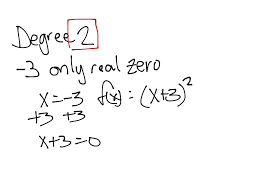 Degree 2
-3 only real zero
x=-3 f(x) = (x+3)²
+3 +3
x+3=0